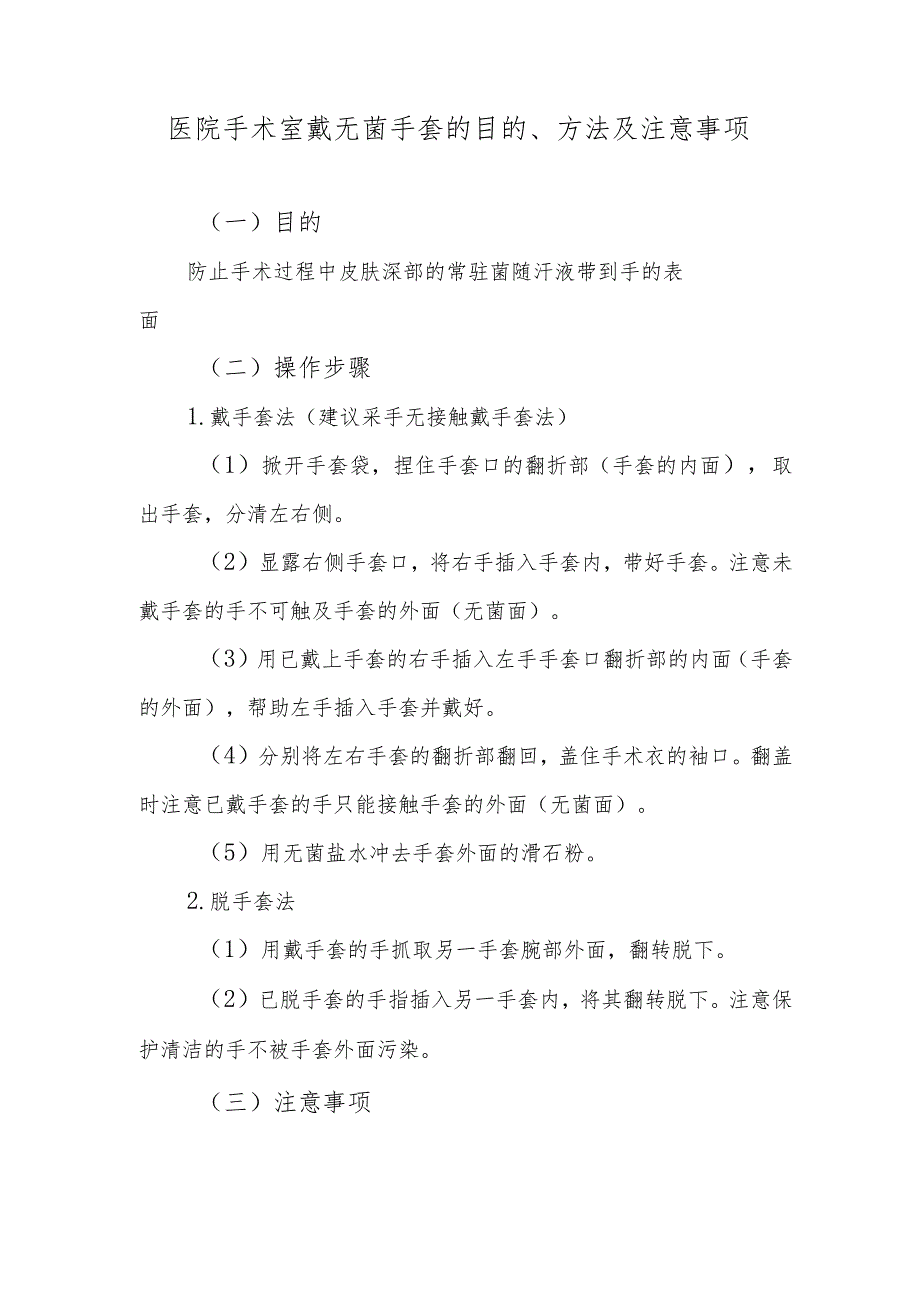 医院手术室戴无菌手套的目的、方法及注意事项
（一）目的
防止手术过程中皮肤深部的常驻菌随汗液带到手的表
面
（二）操作步骤
1.戴手套法（建议采手无接触戴手套法）
（1）掀开手套袋，捏住手套口的翻折部（手套的内面），取
出手套，分清左右侧。
（2）显露右侧手套口，将右手插入手套内，带好手套。注意未
戴手套的手不可触及手套的外面（无菌面）。
（3）用已戴上手套的右手插入左手手套口翻折部的内面（手套
的外面），帮助左手插入手套并戴好。
（4）分别将左右手套的翻折部翻回，盖住手术衣的袖口。翻盖
时注意已戴手套的手只能接触手套的外面（无菌面）。
（5）用无菌盐水冲去手套外面的滑石粉。
2.脱手套法
（1）用戴手套的手抓取另一手套腕部外面，翻转脱下。
（2）已脱手套的手指插入另一手套内，将其翻转脱下。注意保
护清洁的手不被手套外面污染。
（三）注意事项